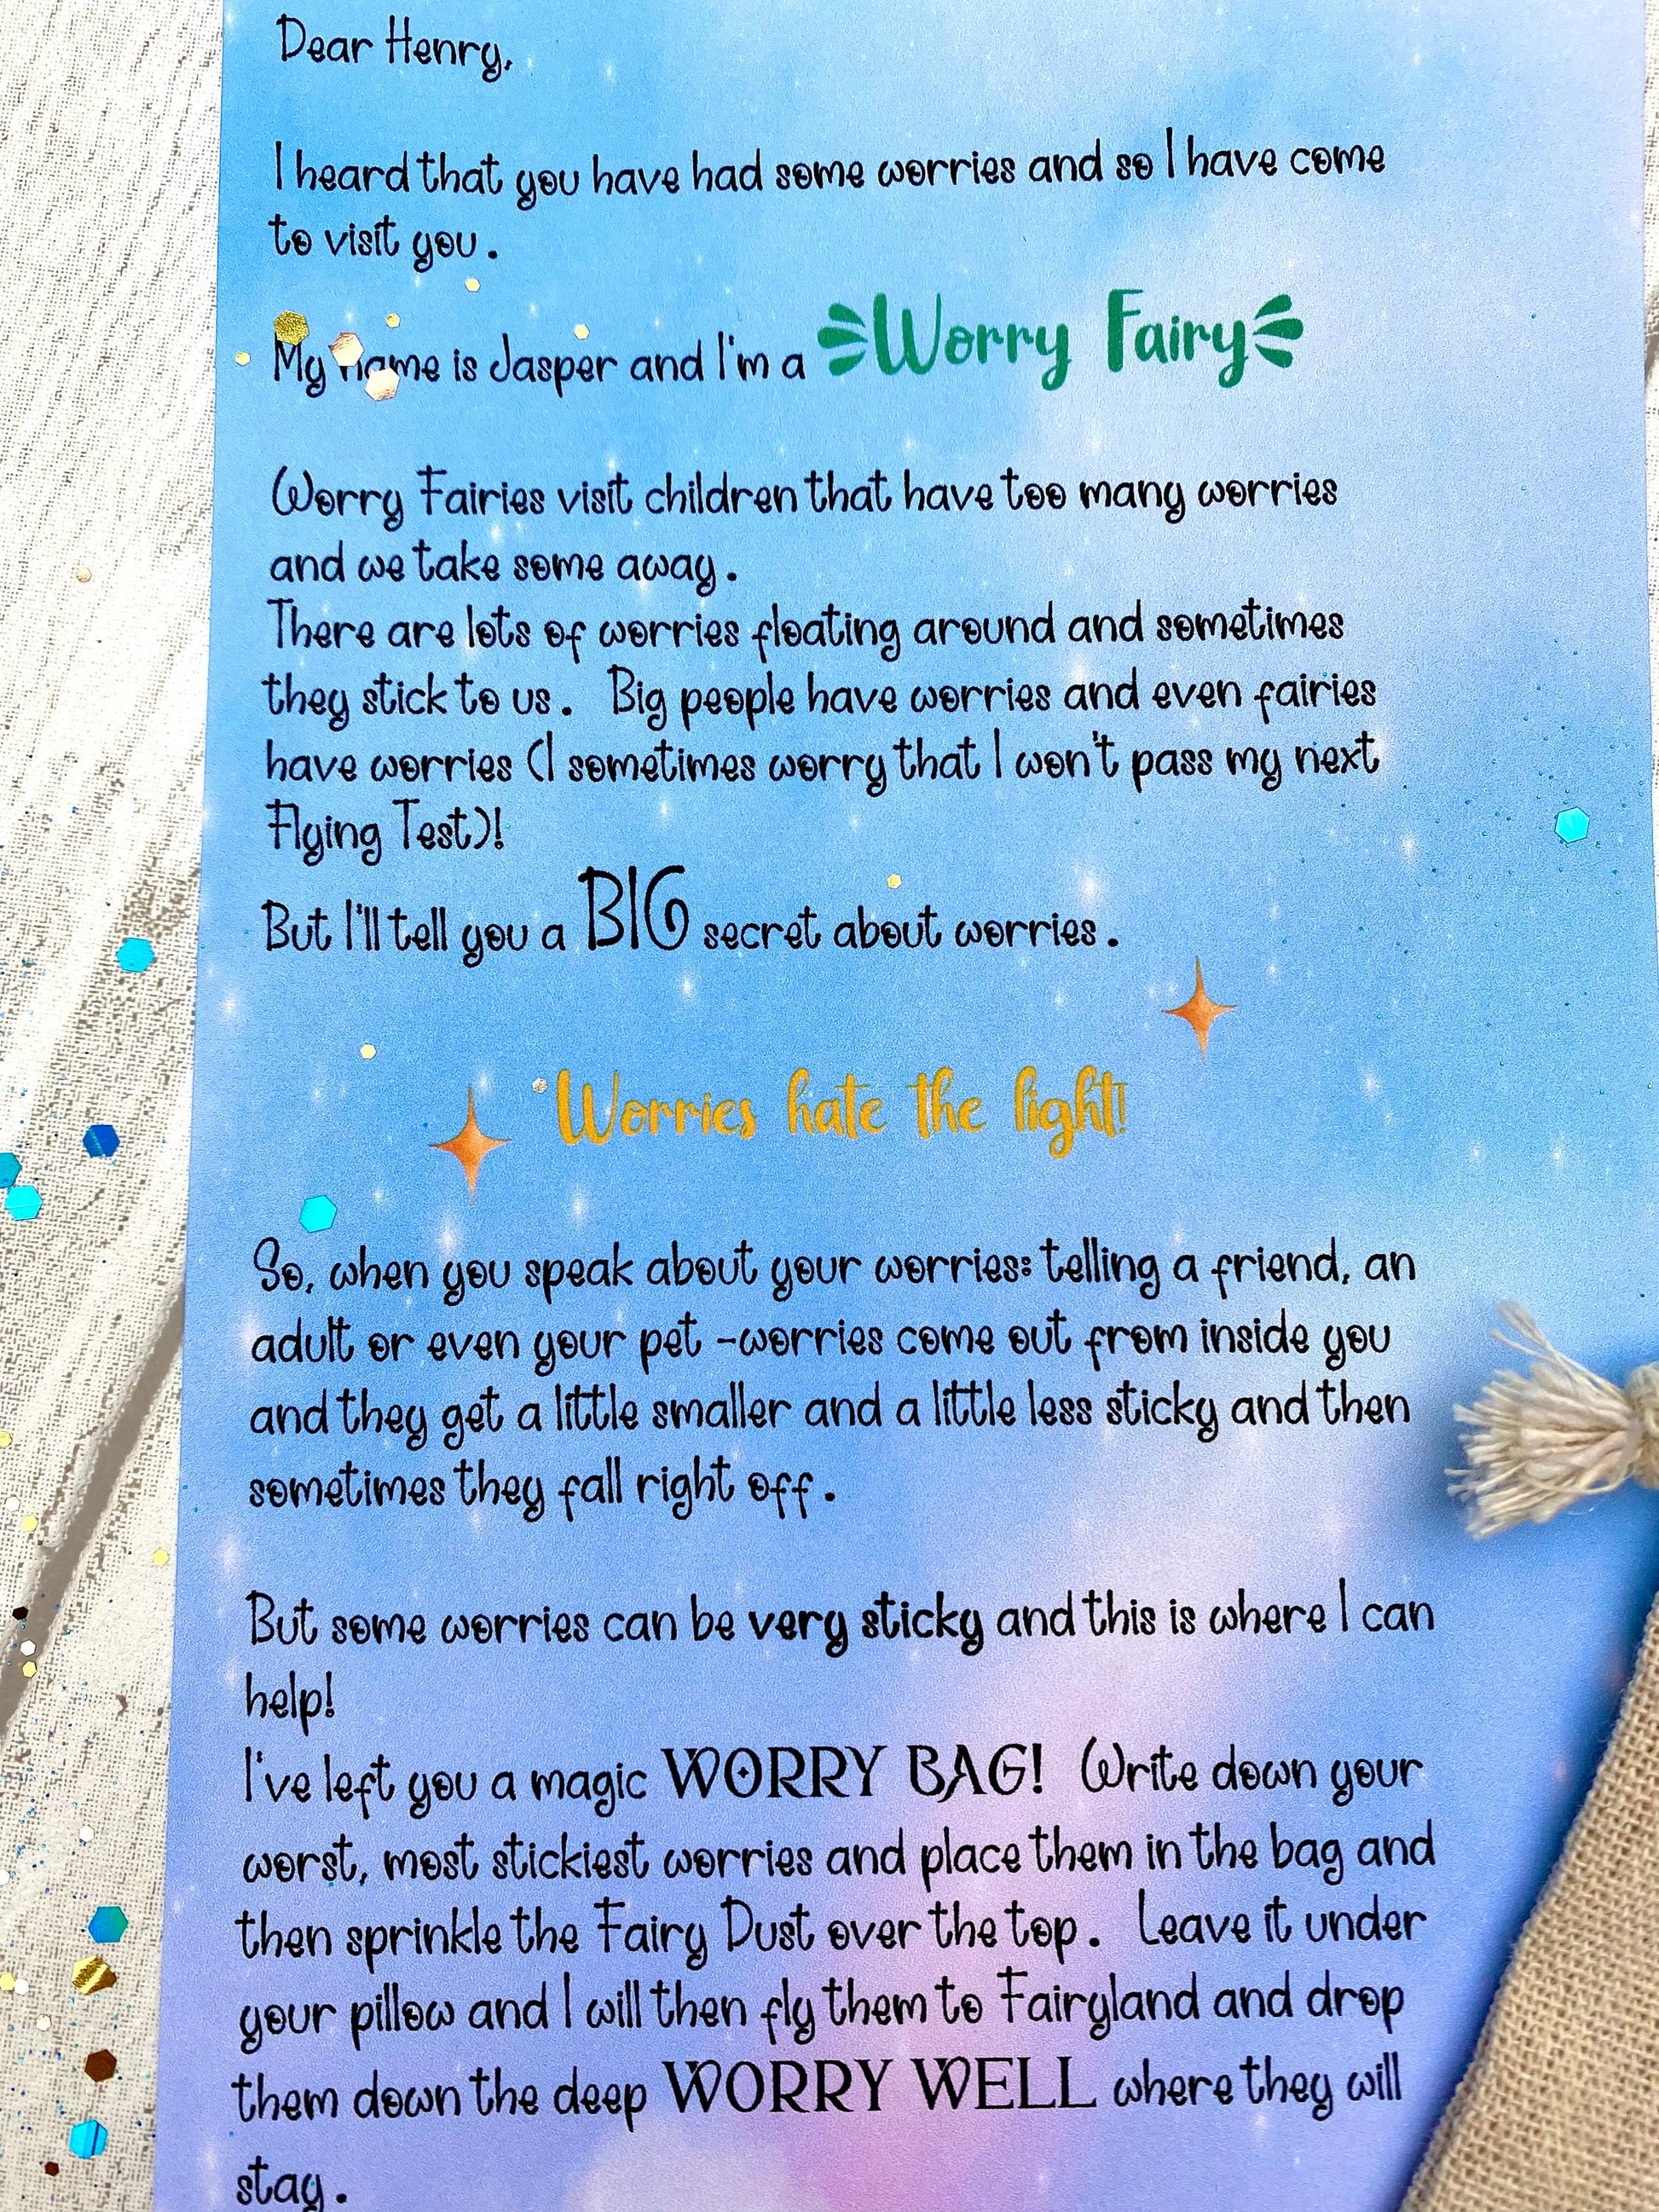 Dear Henry,
I heard that you have had some worries and so I have come
to visit you.
My name is Jasper and I'm a Worry Fairy
Worry Fairies visit children that have too many worries
and we take some away.
There are lots of worries floating around and sometimes
they stick to us. Big people have worries and even fairies
have worries (I sometimes worry that I won't pass my next
Flying Test)!
But I'll tell you a BIG secret about worries.
Worries hate the light!
So, when you speak about your worries: telling a friend, an
adult or even your pet -worries come out from inside you
and they get a little smaller and a little less sticky and then
sometimes they fall right off.
But some worries can be very sticky and this is where I can
help!
I've left you a magic WORRY BAG! Write down your
worst, most stickiest worries and place them in the bag and
then sprinkle the Fairy Dust over the top. Leave it under
your pillow and I will then fly them to Fairyland and drop
them down the deep WORRY WELL where they will
stay.